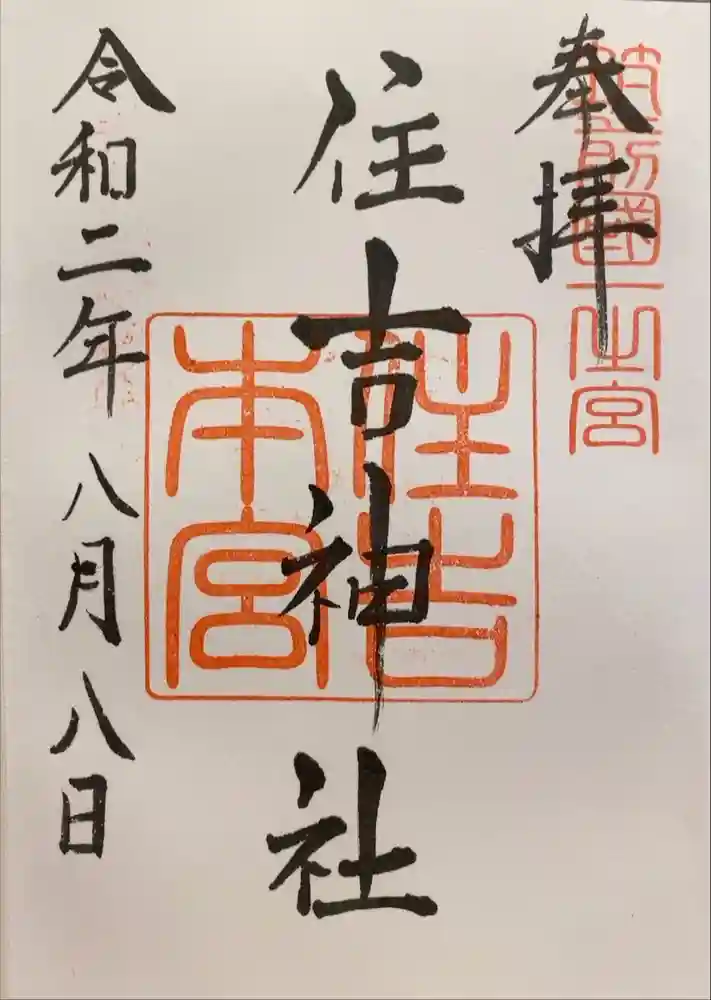 奉拝
筑前國一之宮
住吉神社
住吉本宮
令和二年八月八日